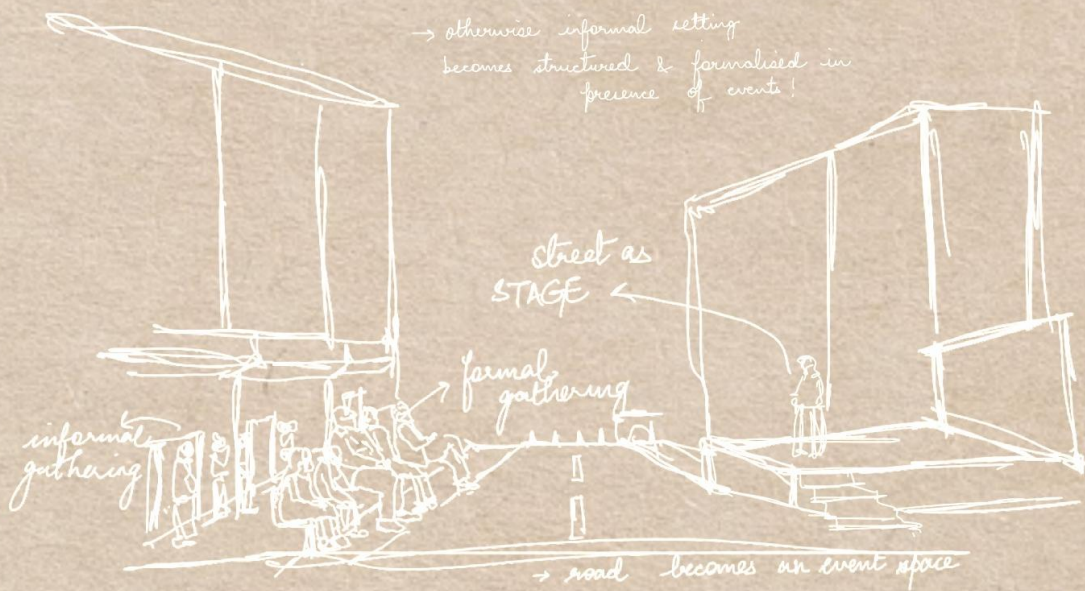 → otherwise informal setting
becomes structured & formalised in
presence of events!
street as
STAGE
formal
gathering
informal
gathering
→ road becomes an event space